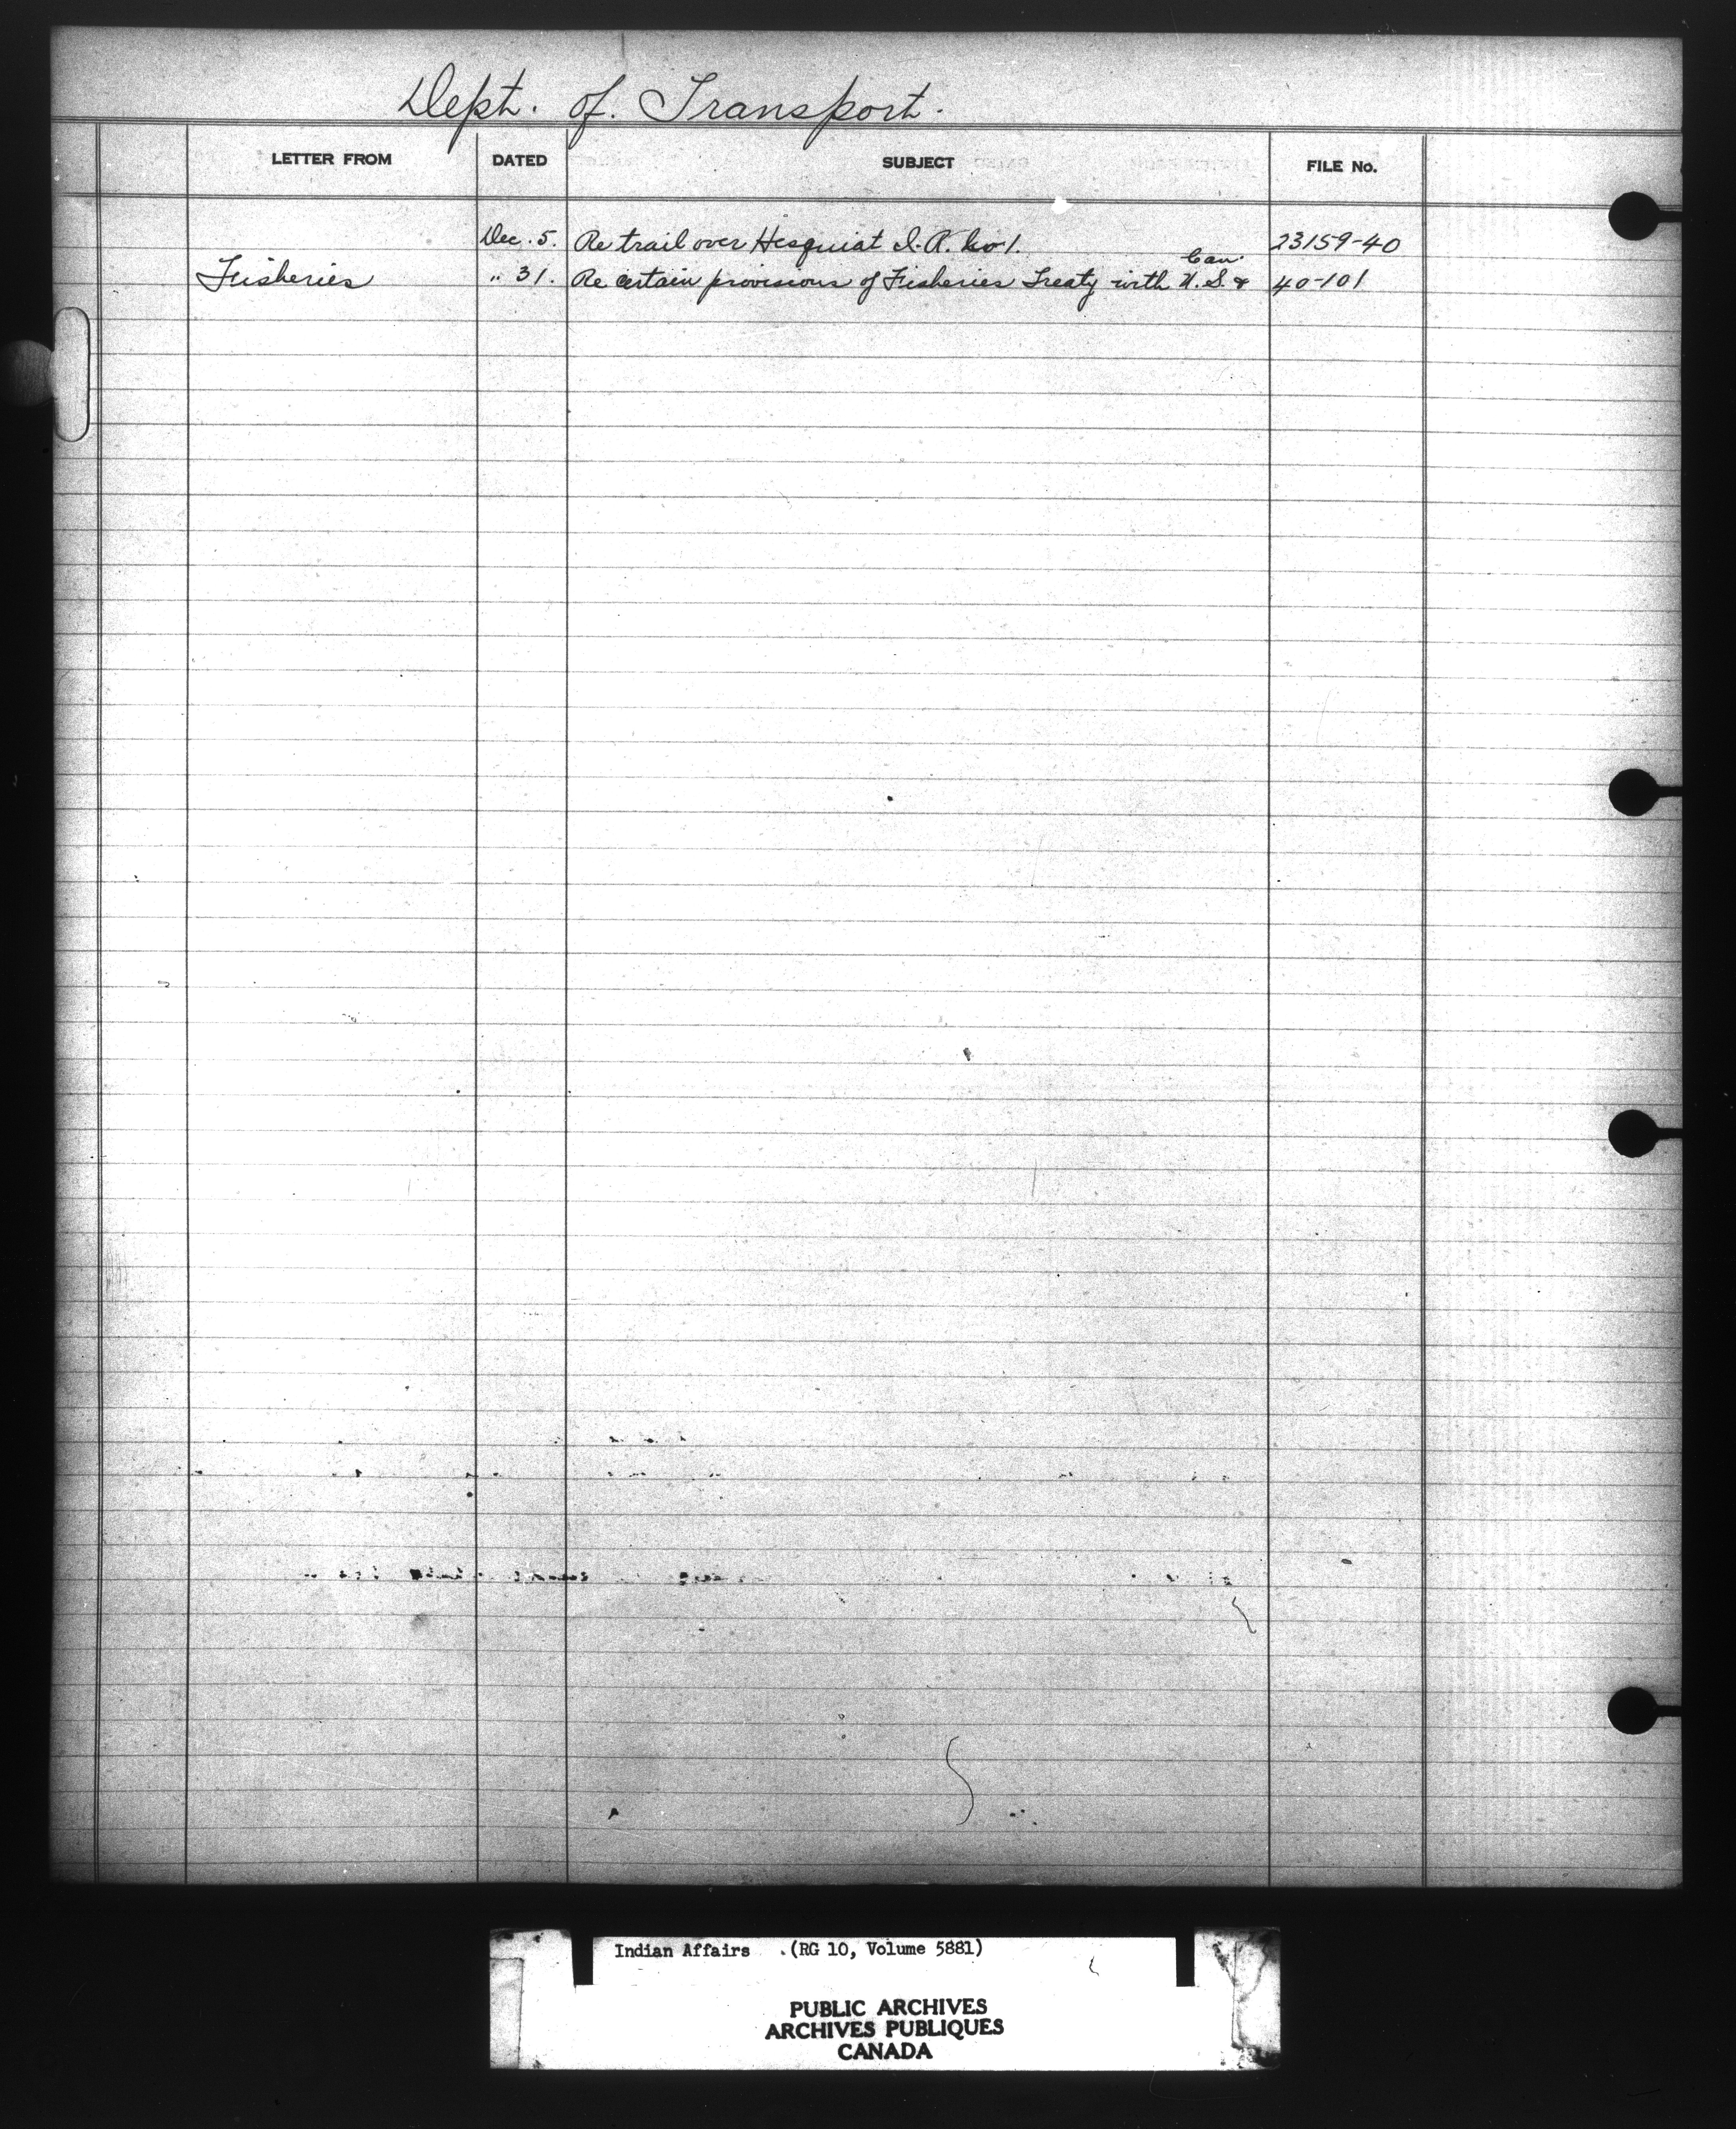 Dept. of. Transport.
LETTER FROM DATED SUBJECT FILE No.
Dec. 5. Re trail over Hesquiat I. R. No 1. 23159-40
Can.
Fisheries " 31. Re certain provisions of Fisheries Treaty with U. S. & 40-101
Indian Affairs .(RG 10, Volume 5881)
PUBLIC ARCHIVES
ARCHIVES PUBLIQUES
CANADA